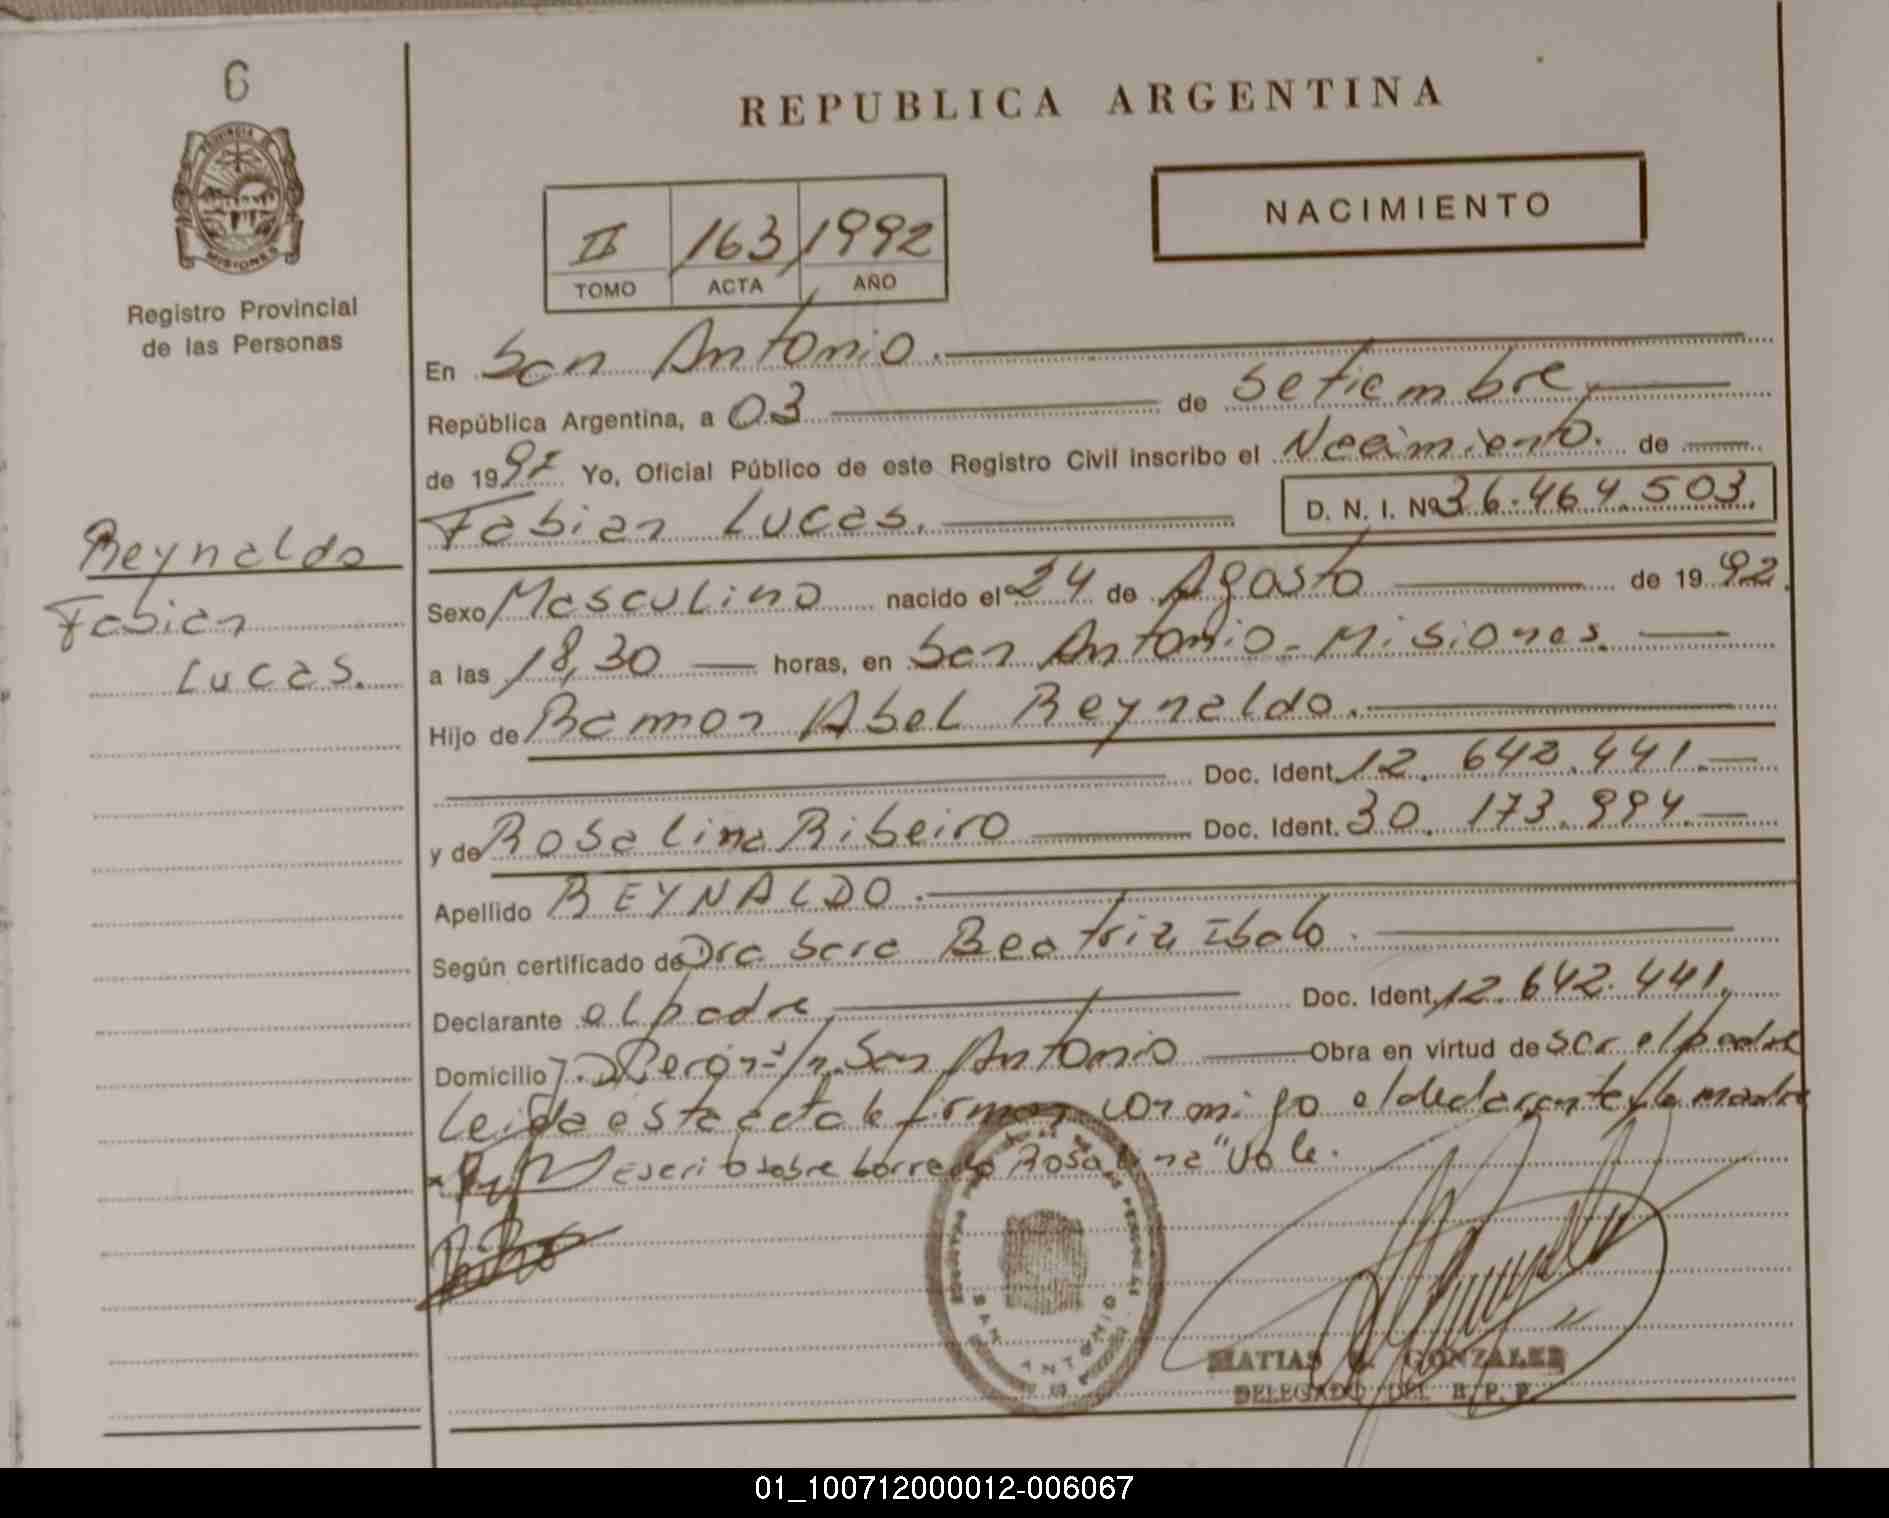 6
PROVINCIA
MISIONES
Registro Provincial
de las Personas
Reynaldo
Fabian
Lucas.
REPUBLICA ARGENTINA
NACIMIENTO
II 163 1992
TOMO ACTA AÑO
En San Antonio.
República Argentina, a 03 de Setiembre
de 1992 Yo, Oficial Público de este Registro Civil inscribo el Nacimiento. de
Fabian Lucas. D. N. I. Nº 36.464.503.
Sexo Masculino nacido el 24 de Agosto de 1992.
a las 18,30 horas, en San Antonio - Misiones.
Hijo de Ramon Abel Reynaldo.
Doc. Ident. 12.642.441.
y de Rosalina Ribeiro Doc. Ident. 30.173.994.
Apellido REYNALDO.
Según certificado de Dra. Sara Beatriz
Declarante el padre Doc. Ident. 12.642.441.
Domicilio J.D Perón s/n. San Antonio Obra en virtud de ser el padre
Leida esta acta la firman conmigo el declarante y la madre
Escrito sobre borrado Rosalina "Vale.
SAN ANTONIO
MATIAS GONZALEZ
DELEGADO DEL R. P. P.
01_100712000012-006067